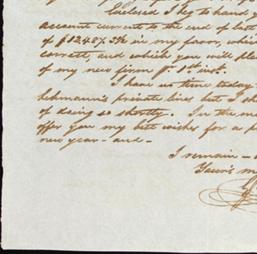 Enclosed I beg to hand y
account current to the end of last
of $ in my favor, whic
correct, and which you will ple
of my new firm pr. 1st inst.
I have no time today
Lehmann's private lines but I sh
of doing so shortly. In the me
offer you my best wishes for a p
new year - and -
I remain -
Yours m